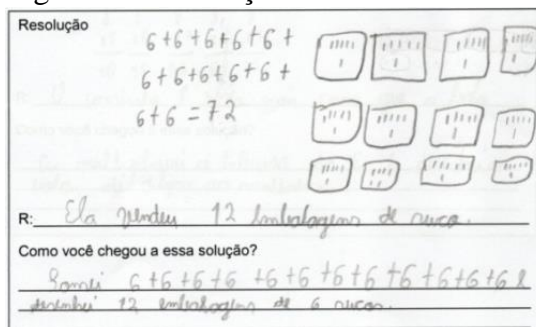 Resolução
6+6+6+6+6+
6+6+6+6+6+
6+6=72
R: Ela vendeu 12 embalagens de suco.
Como você chegou a essa solução?
Somei 6+6+6+6+6+6+6+6+6+6+6+6 e
desenhei 12 embalagens de 6 sucos.